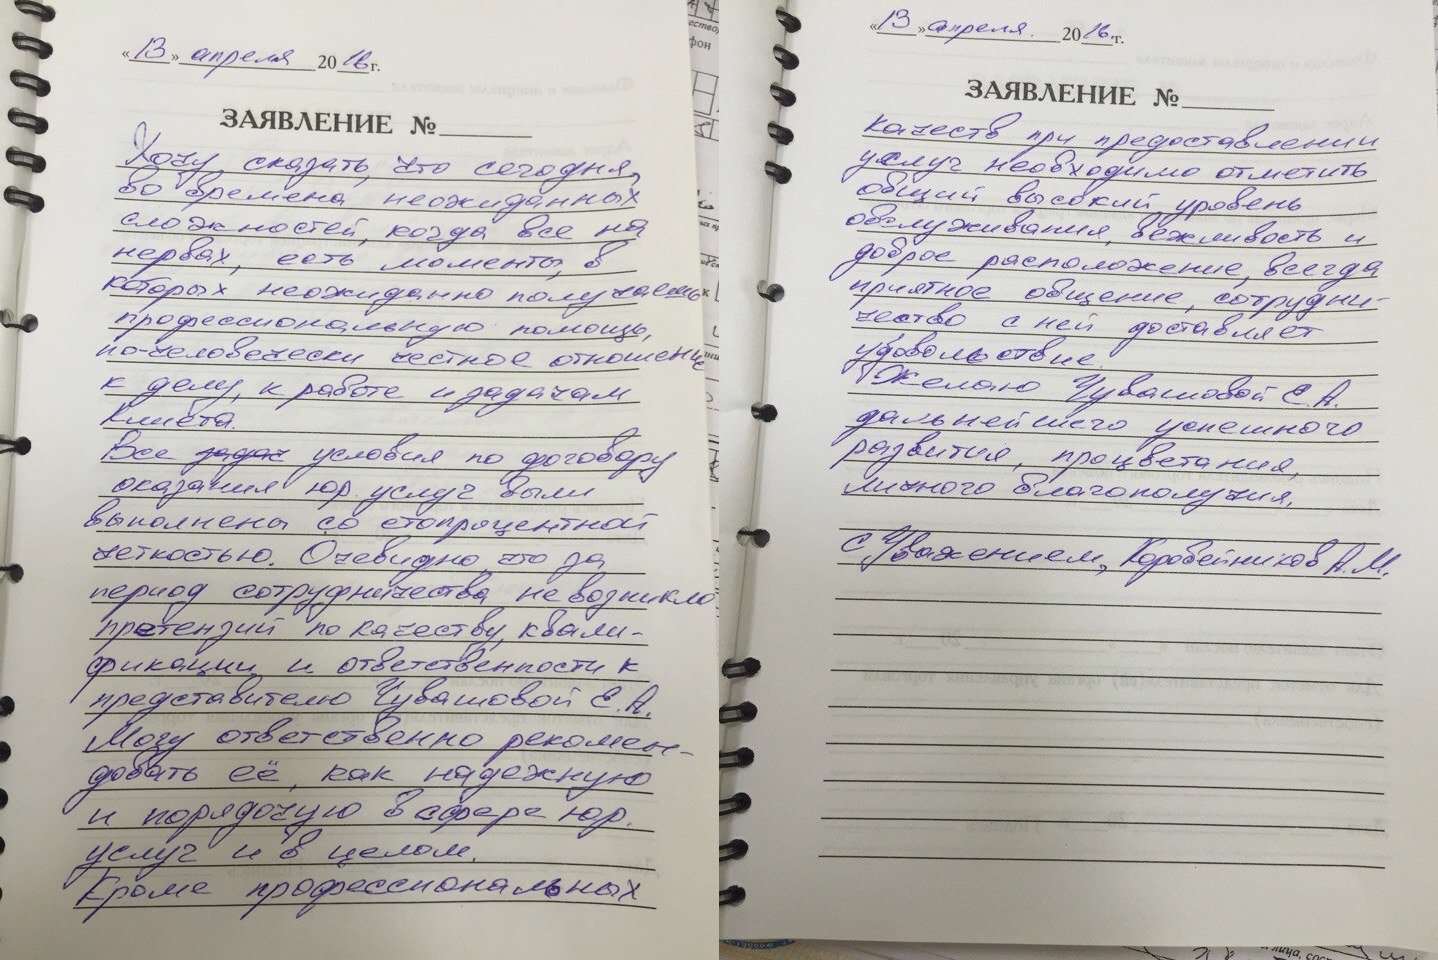 «13» апреля 2016 г.
ЗАЯВЛЕНИЕ №
Хочу сказать, что сегодня,
во времена неожиданных
сложностей, когда все на
нервах, есть моменты, в
которых неожиданно получаешь
профессиональную помощь,
по-человечески честное отношение
к делу, к работе и задачам
Клиента.
Все задач условия по договору
оказания юр. услуг были
выполнены со стопроцентной
четкостью. Очевидно, что за
период сотрудничества не возникло
претензий по качеству, квали-
фикации и ответственности к
представителю Чувашовой Е.А.
Могу ответственно рекомен-
довать её, как надежную
и порядочую в сфере юр.
услуг и в целом.
Кроме профессиональных
«13» апреля. 2016 г.
ЗАЯВЛЕНИЕ №
качеств при предоставлении
услуг необходимо отметить
общий высокий уровень
обслуживания, вежливость и
доброе расположение, всегда
приятное общение, сотрудни-
чество с ней доставляет
удовольствие.
Желаю Чувашовой Е.А.
дальнейшего успешного
развития, процветания,
личного благополучия.
С Уважением, Коробейников А.М.